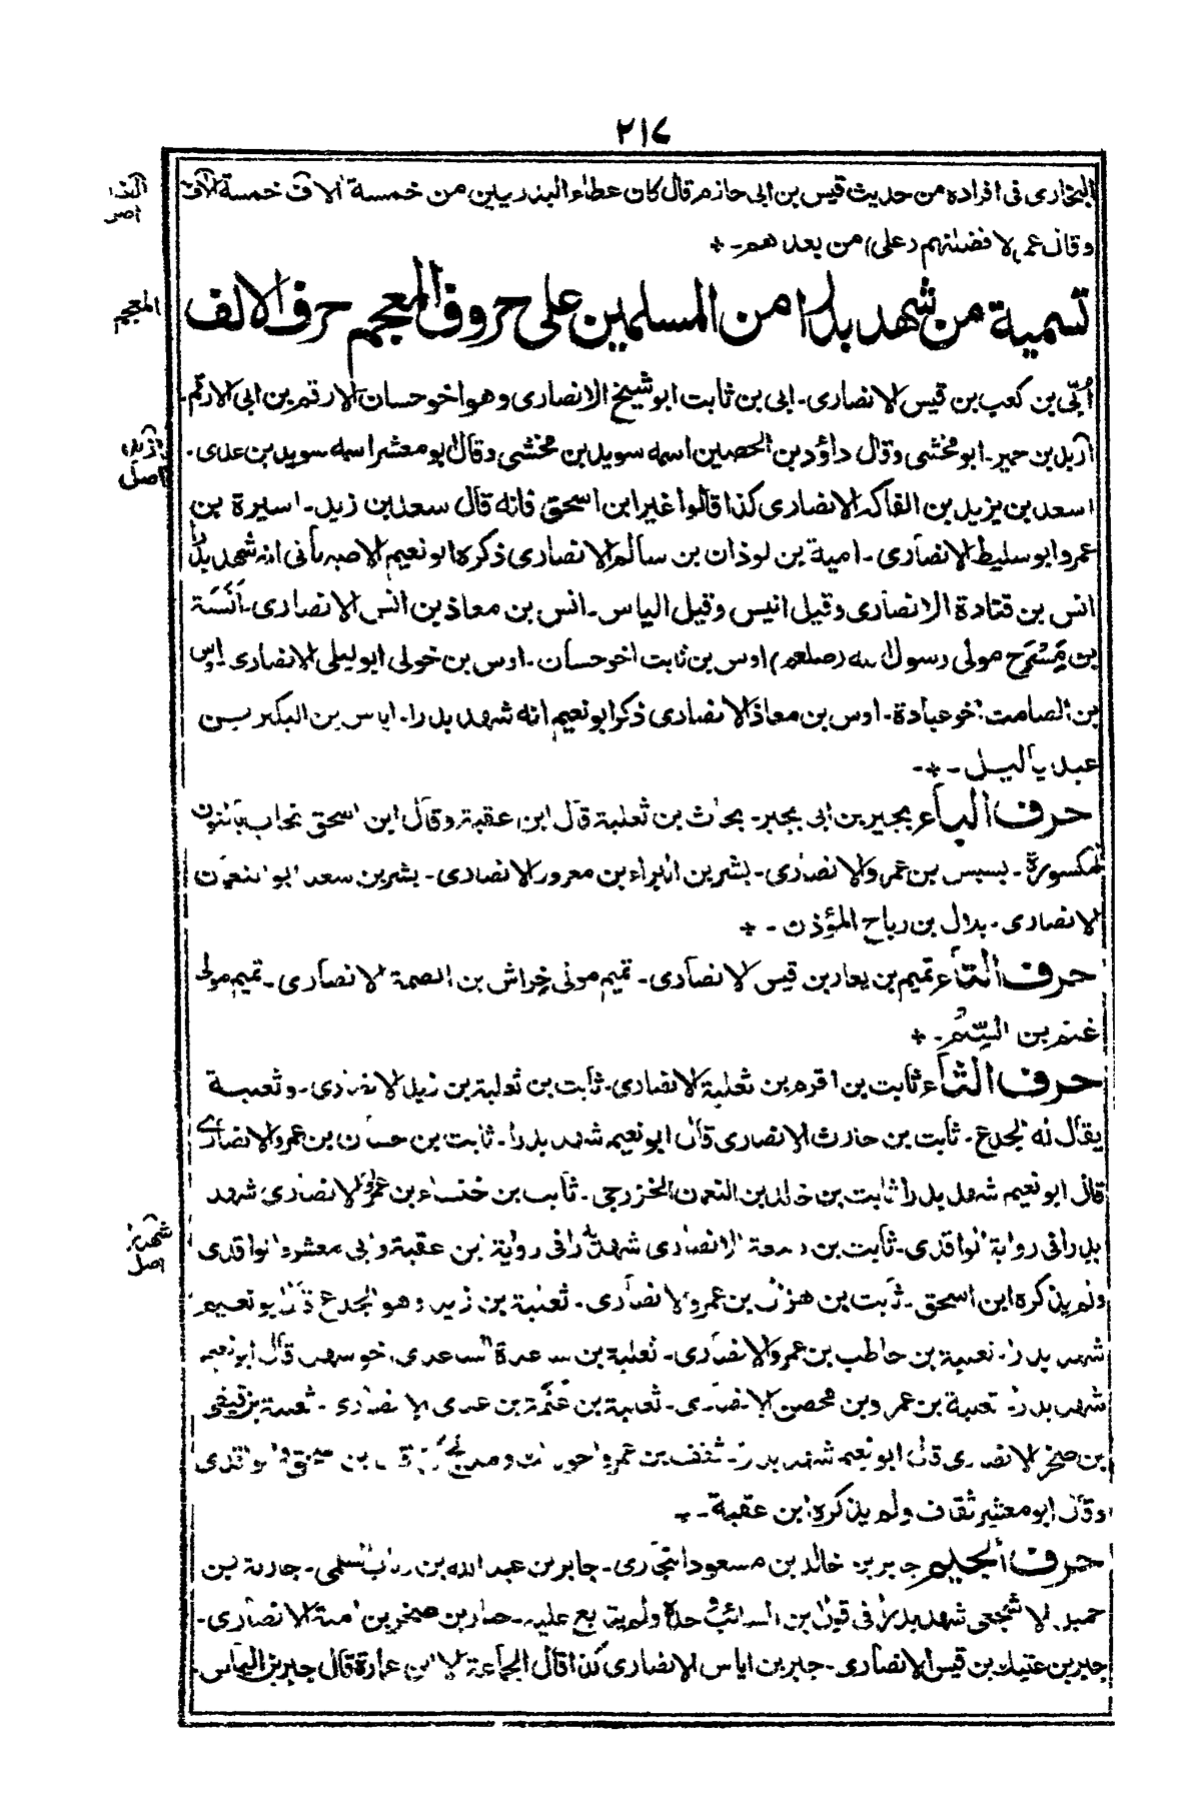 ٢١٧
البخارى فى افراده من حديث قيس بن ابى حازم قال كان عطاء البدريين من خمسة الاف خمسة الاف
وقال عمر لا فضلنهم (على) من بعدهم ـ +
تسمية من شهد بدرا من المسلمين على حروف المعجم حرف الالف
المعجم
اُبىّ بن كعب بن قيس الانصارى ـ ابى بن ثابت ابو شيخ الانصارى وهو اخو حسان الارقم بن ابى الارقم ـ
اربد بن حمير ـ ابو مخشى وقال داؤد بن الحصين اسمه سويد بن مخشى وقال ابو معشر اسمه سويد بن عدى ـ
اسعد بن يزيد بن الفاكه الانصارى كذا قالوا غير ابن اسحق فانه قال سعد بن زيد ـ اسيرة بن
عمرو ابو سليط الانصارى ـ امية بن لوذان بن سالم الانصارى ذكره ابو نعيم الاصبهانى انه شهد بدرا
انس بن قتادة الانصارى وقيل انيس وقيل الياس ـ انس بن معاذ بن انس الانصارى ـ اَنَسَة
بن مِسْرَح مولى رسول الله (صلعم) اوس بن ثابت اخو حسان ـ اوس بن خولى ابو ليلى الانصارى اوس
بن الصامت اخو عبادة ـ اوس بن معاذ الانصارى ذكر ابو نعيم انه شهد بدرا ـ اياس بن البكير بن
عبد ياليل ـ + ـ
حرف الباء بجير بن ابى بجير ـ بحاث بن ثعلبة قال ابن عقبة وقال ابن اسحق نحاب بالنون
المكسورة ـ بسبس بن عمرو الانصارى ـ بشر بن البراء بن معرور الانصارى ـ بشر بن سعد ابو النعمان
الانصارى ـ بلال بن رباح المؤذن ـ +
حرف التاء تميم بن يعار بن قيس الانصارى ـ تميم مولى خِراش بن الصمة الانصارى ـ تميم مولى
غنم بن السِّلْم ـ +
حرف الثاء ثابت بن اقرم بن ثعلبة الانصارى ـ ثابت بن ثعلبة بن زيد الانصارى ـ وثعلبة
يقال له الجدع ـ ثابت بن حارث الانصارى قال ابو نعيم شهد بدرا ـ ثابت بن حسان بن عمرو الانصارى
قال ابو نعيم شهد بدرا ثابت بن خالد بن النعمان الخزرجى ـ ثابت بن خنساء بن عمرو الانصارى شهد
بدرا فى رواية الواقدى ـ ثابت بن ربيعة الانصارى شهد بدرا فى رواية ابن عقبة وابى معشر والواقدى
ولم يذكره ابن اسحق ـ ثابت بن هزال بن عمرو الانصارى ـ ثعلبة بن زيد وهو الجدع قال ابو نعيم
شهد بدرا ـ ثعلبة بن حاطب بن عمرو الانصارى ـ ثعلبة بن ساعدة الساعدى اخو سهل قال ابو نعيم
شهد بدرا ـ ثعلبة بن عمرو بن محصن الانصارى ـ ثعلبة بن عَنَمَة بن عدى الانصارى ـ ثعلبة بن قيظى
بن صخر الانصارى قال ابو نعيم شهد بدرا ـ ثقف بن عمرو اخو مالك ومدلج قال ابن اسحق والواقدى
وقال ابو معشر ثقاف ولم يذكره ابن عقبة ـ + ـ
حرف الجيم جابر بن خالد بن مسعود النجارى ـ جابر بن عبد الله بن رياب السلمى ـ جارية بن
حميل الاشجعى شهد بدرا فى قول ابن السائب وحده ولم يتابع عليه ـ جبار بن صخر بن امية الانصارى ـ
جبر بن عتيك بن قيس الانصارى ـ جبر بن اياس الانصارى كذا قال الجماعة الا ابن عمارة قال جبير بن الياس ـ